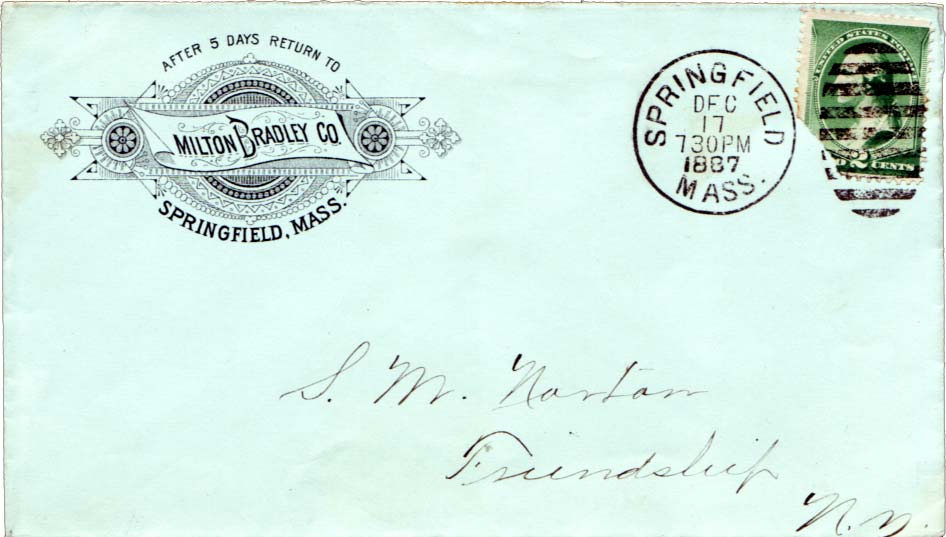 AFTER 5 DAYS RETURN TO
MILTON BRADLEY CO.
SPRINGFIELD, MASS.
SPRINGFIELD
DEC
17
730PM
1887
MASS.
UNITED STATES POSTAGE
2 CENTS
S. M. Norton
Friendship
N.Y.